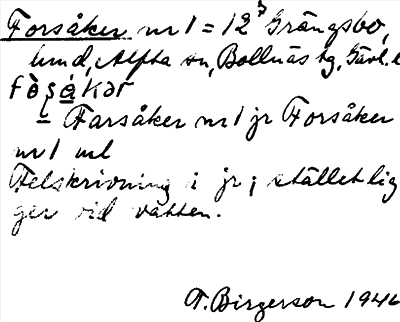 Forsåker nr 1 = 12³ Grängsbo,
hmd, Alfta sn, Bollnäs tg, Gävl. l
= Farsåker nr 1 jr Forsåker
nr 1 ml
Felskrivning i jr; stället lig
ger vid vatten.
T. Birgerson 1946